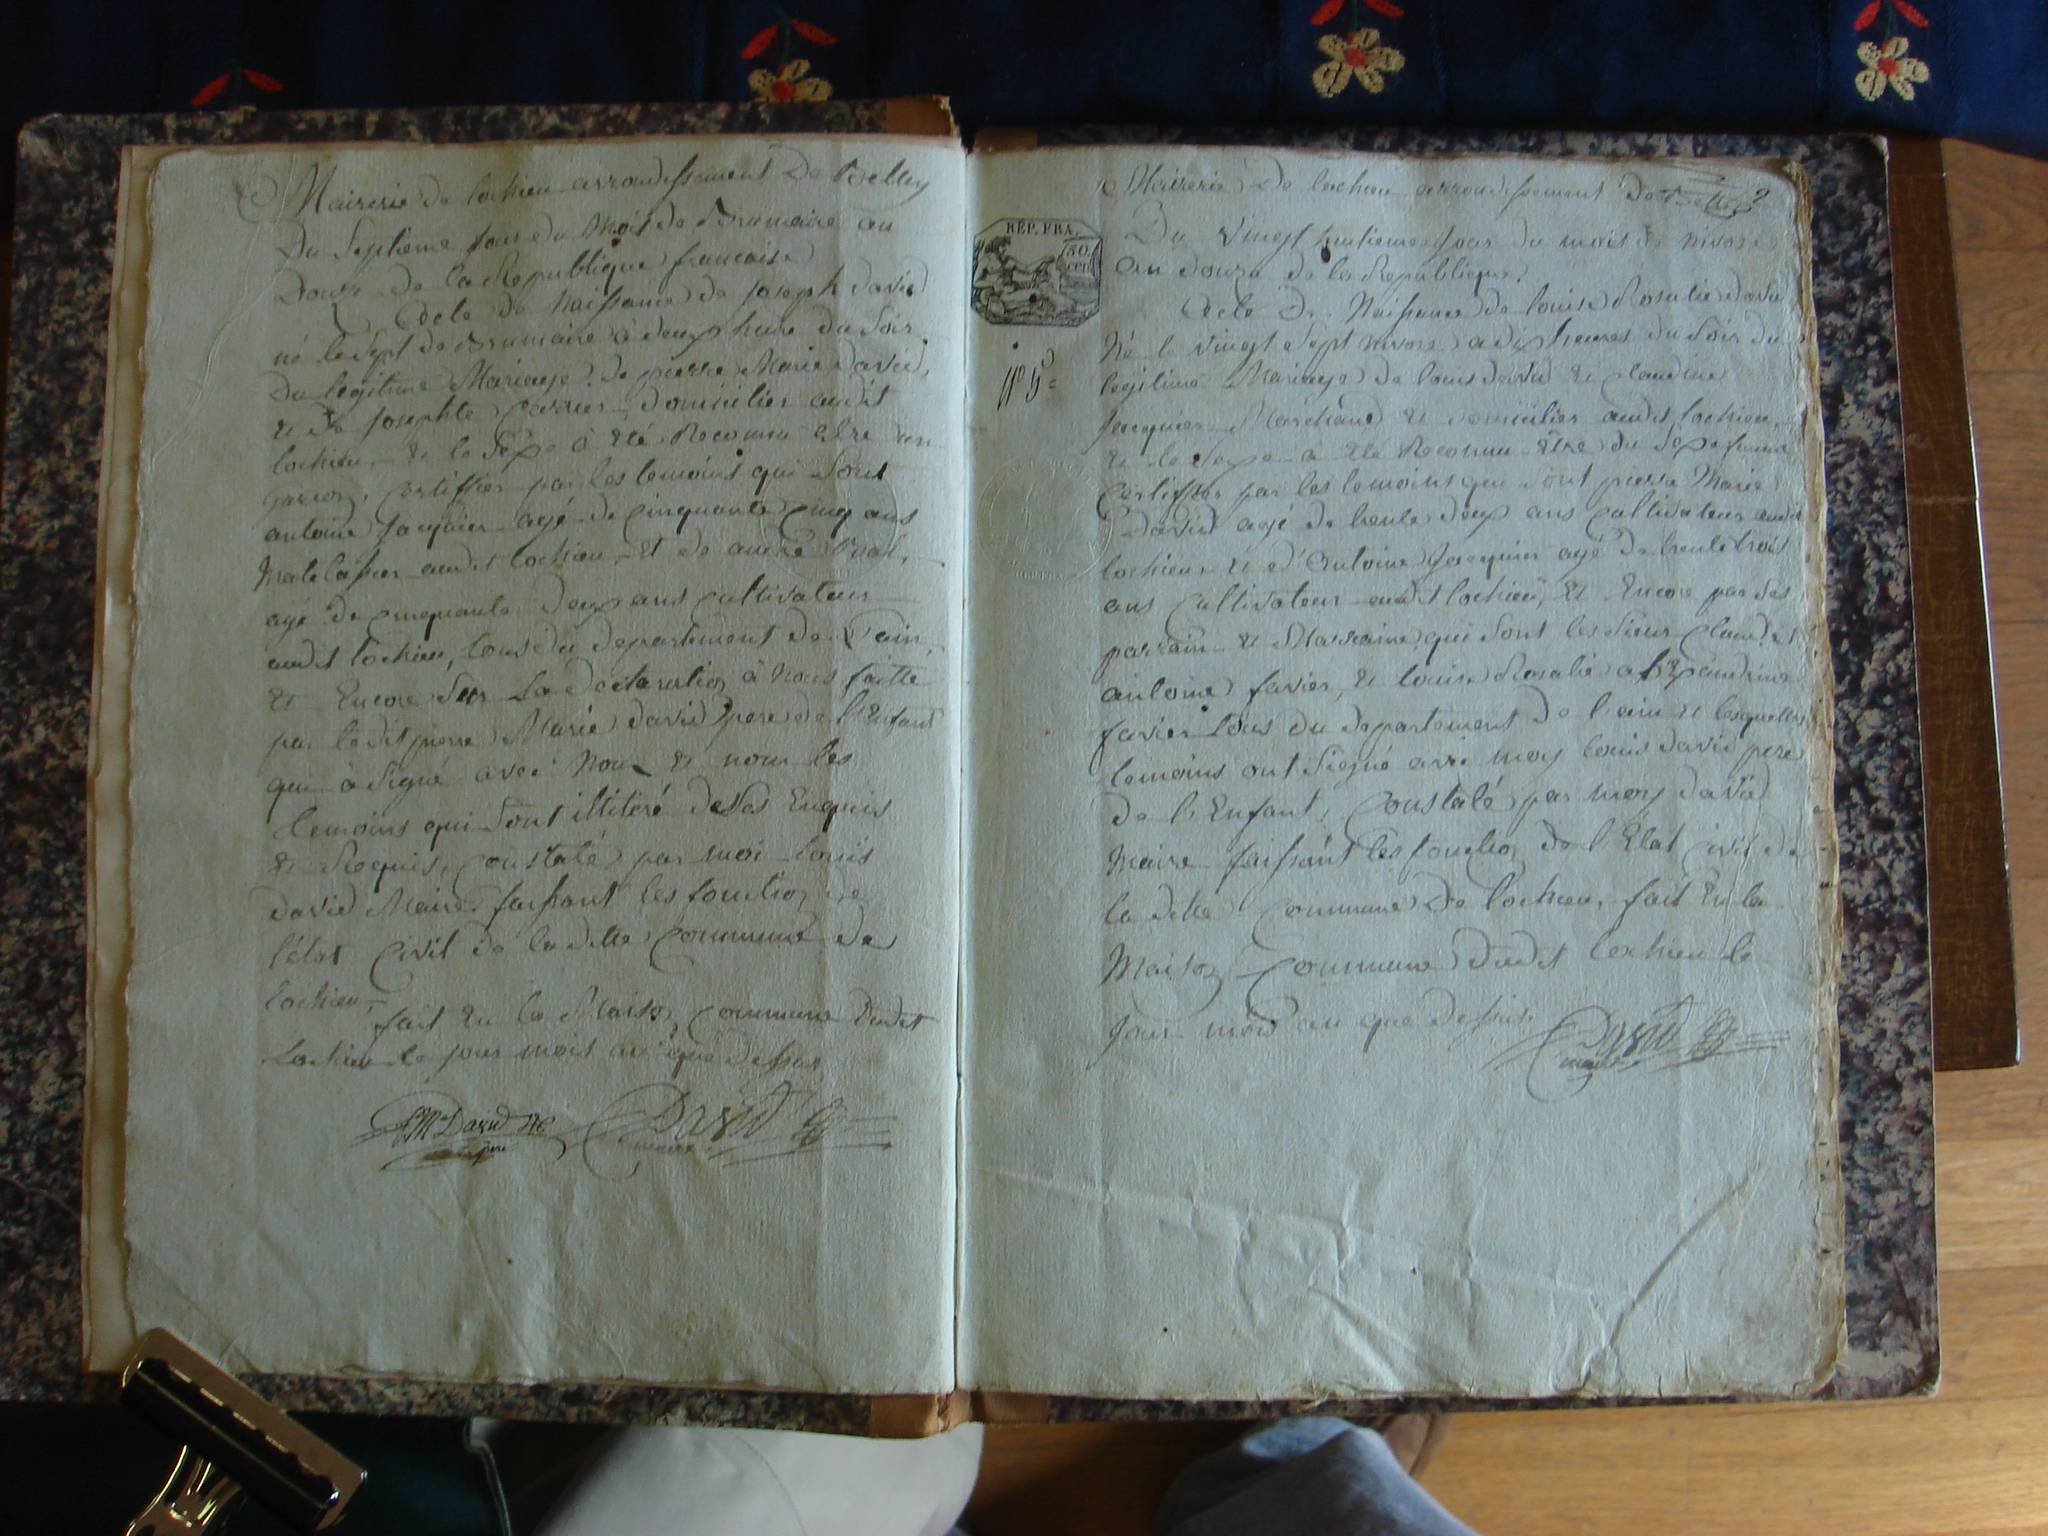 Mairerie de lochieu arrondissement De Belley
Du Septieme jour du Mois de Brumaire an
Douze de la Republique francaise
Acte de Naissance de joseph david
né le Sept de Brumaire à deux heure du Soir
du legitime Mariage de pierre Marie david,
& de josephte Carrier domicilier audit
lochieu & le Sexe à été Reconnu etre un
garcon, certiffier par les temoins qui Sont
antoine jacquier agé de cinquante cinq ans
Matelassier audit lochieu et de andré
agé de cinquante deux ans cultivateur
audit lochieu, tous du departement de L'ain,
& Encore Sur La Declaration à Nous faitte
par ledit pierre Marie david pere de l'Enfant
qui à Signé avec Nous & nom les
temoins qui Sont illitéré de Enquis
& Requis, constaté par moi louis
david Maire faissant les fonction de
l'état Civil de la ditte Commune de
lochieu,
fait En la Maison commune dudit
Lochieu le jour mois an que dessus
PM David père David maire
2
Mairerie De lochieu arrondissement de Belley
RÉP. FRA.
50 CEN
Du vingt huitieme jour du mois de nivose
an douze de la Republique,
Acte De Naissance de louise Rosalie david
N° 5
Né le vingt Sept nivose a dix heures du Soir du
legitime Mariage de louis david & claudine
jacquier Marchand & domicilier audit lochieu
& le Sexe a été Reconnu être du Sexe feminin
Certiffier par les temoins qui Sont pierre Marie
David agé de trente deux ans cultivateur audit
lochieu & d'Antoine jacquier agé de trente trois
ans Cultivateur audit lochieu, & Encore par Ses
parrain & Marraine, qui Sont les Sieur
antoine favier, & louise Rosalie alexandrine
favier tous du departement de l'ain & lesquelles
temoins ont Signé avec moy louis david pere
de l'Enfant, Constaté par moy david
Maire faissant les fonction de l'Etat Civil de
la ditte Commune De lochieu, fait En la
Maison Commune dudit lochieu le
Jour mois an que dessus
David maire